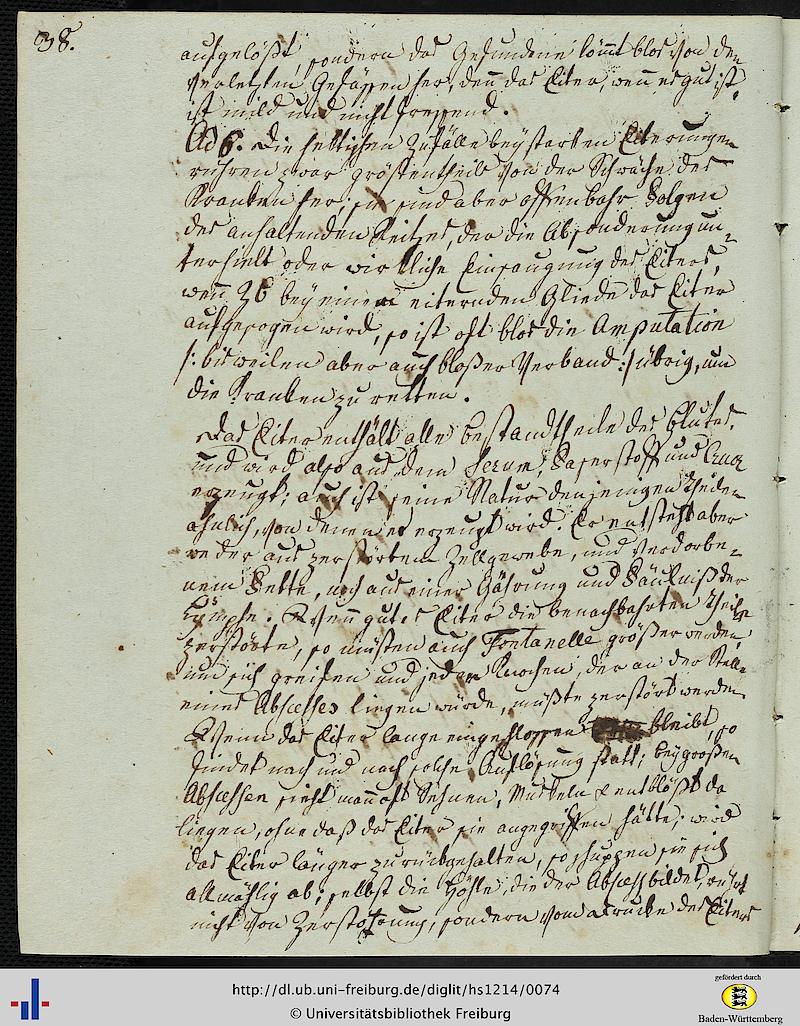 38.
aufgelößt, sondern das Gefundene kömt blos von den
verletzten Gefäßen her, denn das Eiter, wenn es gut ist,
ist mild und nicht fressend.
Ad 6. Die heftigen Zufälle bey starken Eiterungen
rühren zwar größtentheils von der Schwäche des
Kranken her; sie sind aber offenbahr Folgen
des anhaltenden Reitzes, der die Absonderung un-
terhielt oder wirkliche Einsaugung des Eiters,
wenn ZB bey einem eiternden Gliede das Eiter
aufgesogen wird, so ist oft blos die Amputation
/: bisweilen aber auch bloßer Verband :/ übrig, um
die Kranken zu retten.
Das Eiter enthält alle Bestandtheile des Blutes,
und wird also aus dem Serum, Faserstoff und Cruor
erzeugt; auch ist seine Natur denjenigen Theilen
ähnlich, von denen es erzeugt wird. Er entsteht aber
weder aus zerstörtem Zellgewebe, und verdorbe-
nem Fette, noch aus einer Gährung und Fäulniß der
Lymphe. Wenn gutes Eiter die benachbahrten Theile
zerstörte, so müßten auch Fontanelle größer werden,
um sich greifen und jeder Knochen, der an der Stelle
eines Abscesses liegen würde, müßte zerstört werden.
Wenn das Eiter lange eingeschlossen bleibt, so
findet nach und nach solche Auflösung statt; bey großen
Abscessen sieht man oft Sehnen, Muskeln & entblößt da
liegen, ohne daß das Eiter sie angegriffen hätte; wird
das Eiter länger zurückgehalten, so schuppen sie sich
allmählig ab; selbst die Höhle, die der Abscess bildet, rührt
nicht von Zerstöhrung, sondern vom Drucke des Eiters
http://dl.ub.uni-freiburg.de/diglit/hs1214/0074
© Universitätsbibliothek Freiburg
gefördert durch
Baden-Württemberg